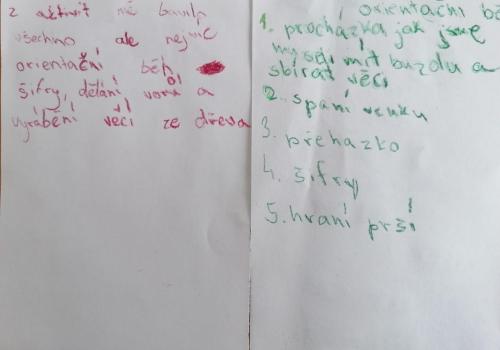 z aktivit mě bavilo
všechno ale nejvíc
orientační běh
šifry, dělání vorů a
vyrábění věcí ze dřeva
orientační bě
1. procházka jak jsme
museli mít buzolu a
sbírat věci
2. spaní venku
3. přehazko
4. šifry
5. hraní prší